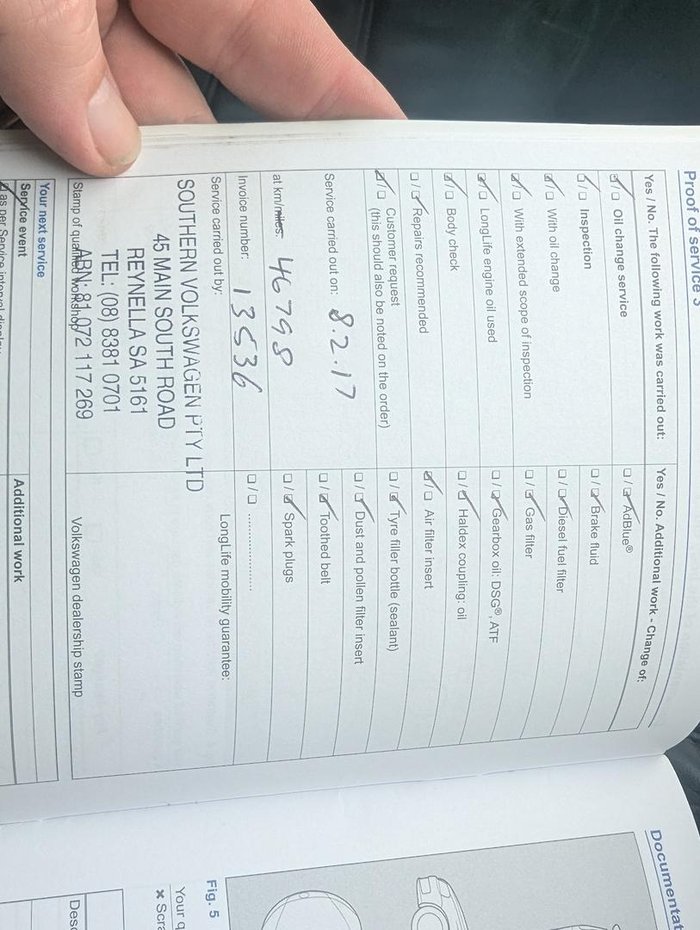 Proof of service
Yes / No. The following work was carried out:
☑ / ☐ Oil change service
☑ / ☐ Inspection
☑ / ☐ With oil change
☑ / ☐ With extended scope of inspection
☑ / ☐ LongLife engine oil used
☑ / ☐ Body check
☐ / ☑ Repairs recommended
☑ / ☐ Customer request
(this should also be noted on the order)
Service carried out on: 8.2.17
at km/miles: 46798
Invoice number: 13536
Service carried out by:
SOUTHERN VOLKSWAGEN PTY LTD
45 MAIN SOUTH ROAD
REYNELLA SA 5161
TEL: (08) 8381 0701
ABN: 81 072 117 269
Stamp of qualified workshop
Yes / No. Additional work - Change of:
☐ / ☑ AdBlue®
☐ / ☑ Brake fluid
☐ / ☑ Diesel fuel filter
☐ / ☑ Gas filter
☐ / ☑ Gearbox oil: DSG®, ATF
☐ / ☑ Haldex coupling: oil
☑ / ☐ Air filter insert
☐ / ☑ Tyre filler bottle (sealant)
☐ / ☑ Dust and pollen filter insert
☐ / ☑ Toothed belt
☐ / ☑ Spark plugs
☐ / ☐ ....................
LongLife mobility guarantee:
Volkswagen dealership stamp
Your next service
Service event
Additional work
as per Service interval display
Documentat
Fig. 5
Your q
× Scra
Desc